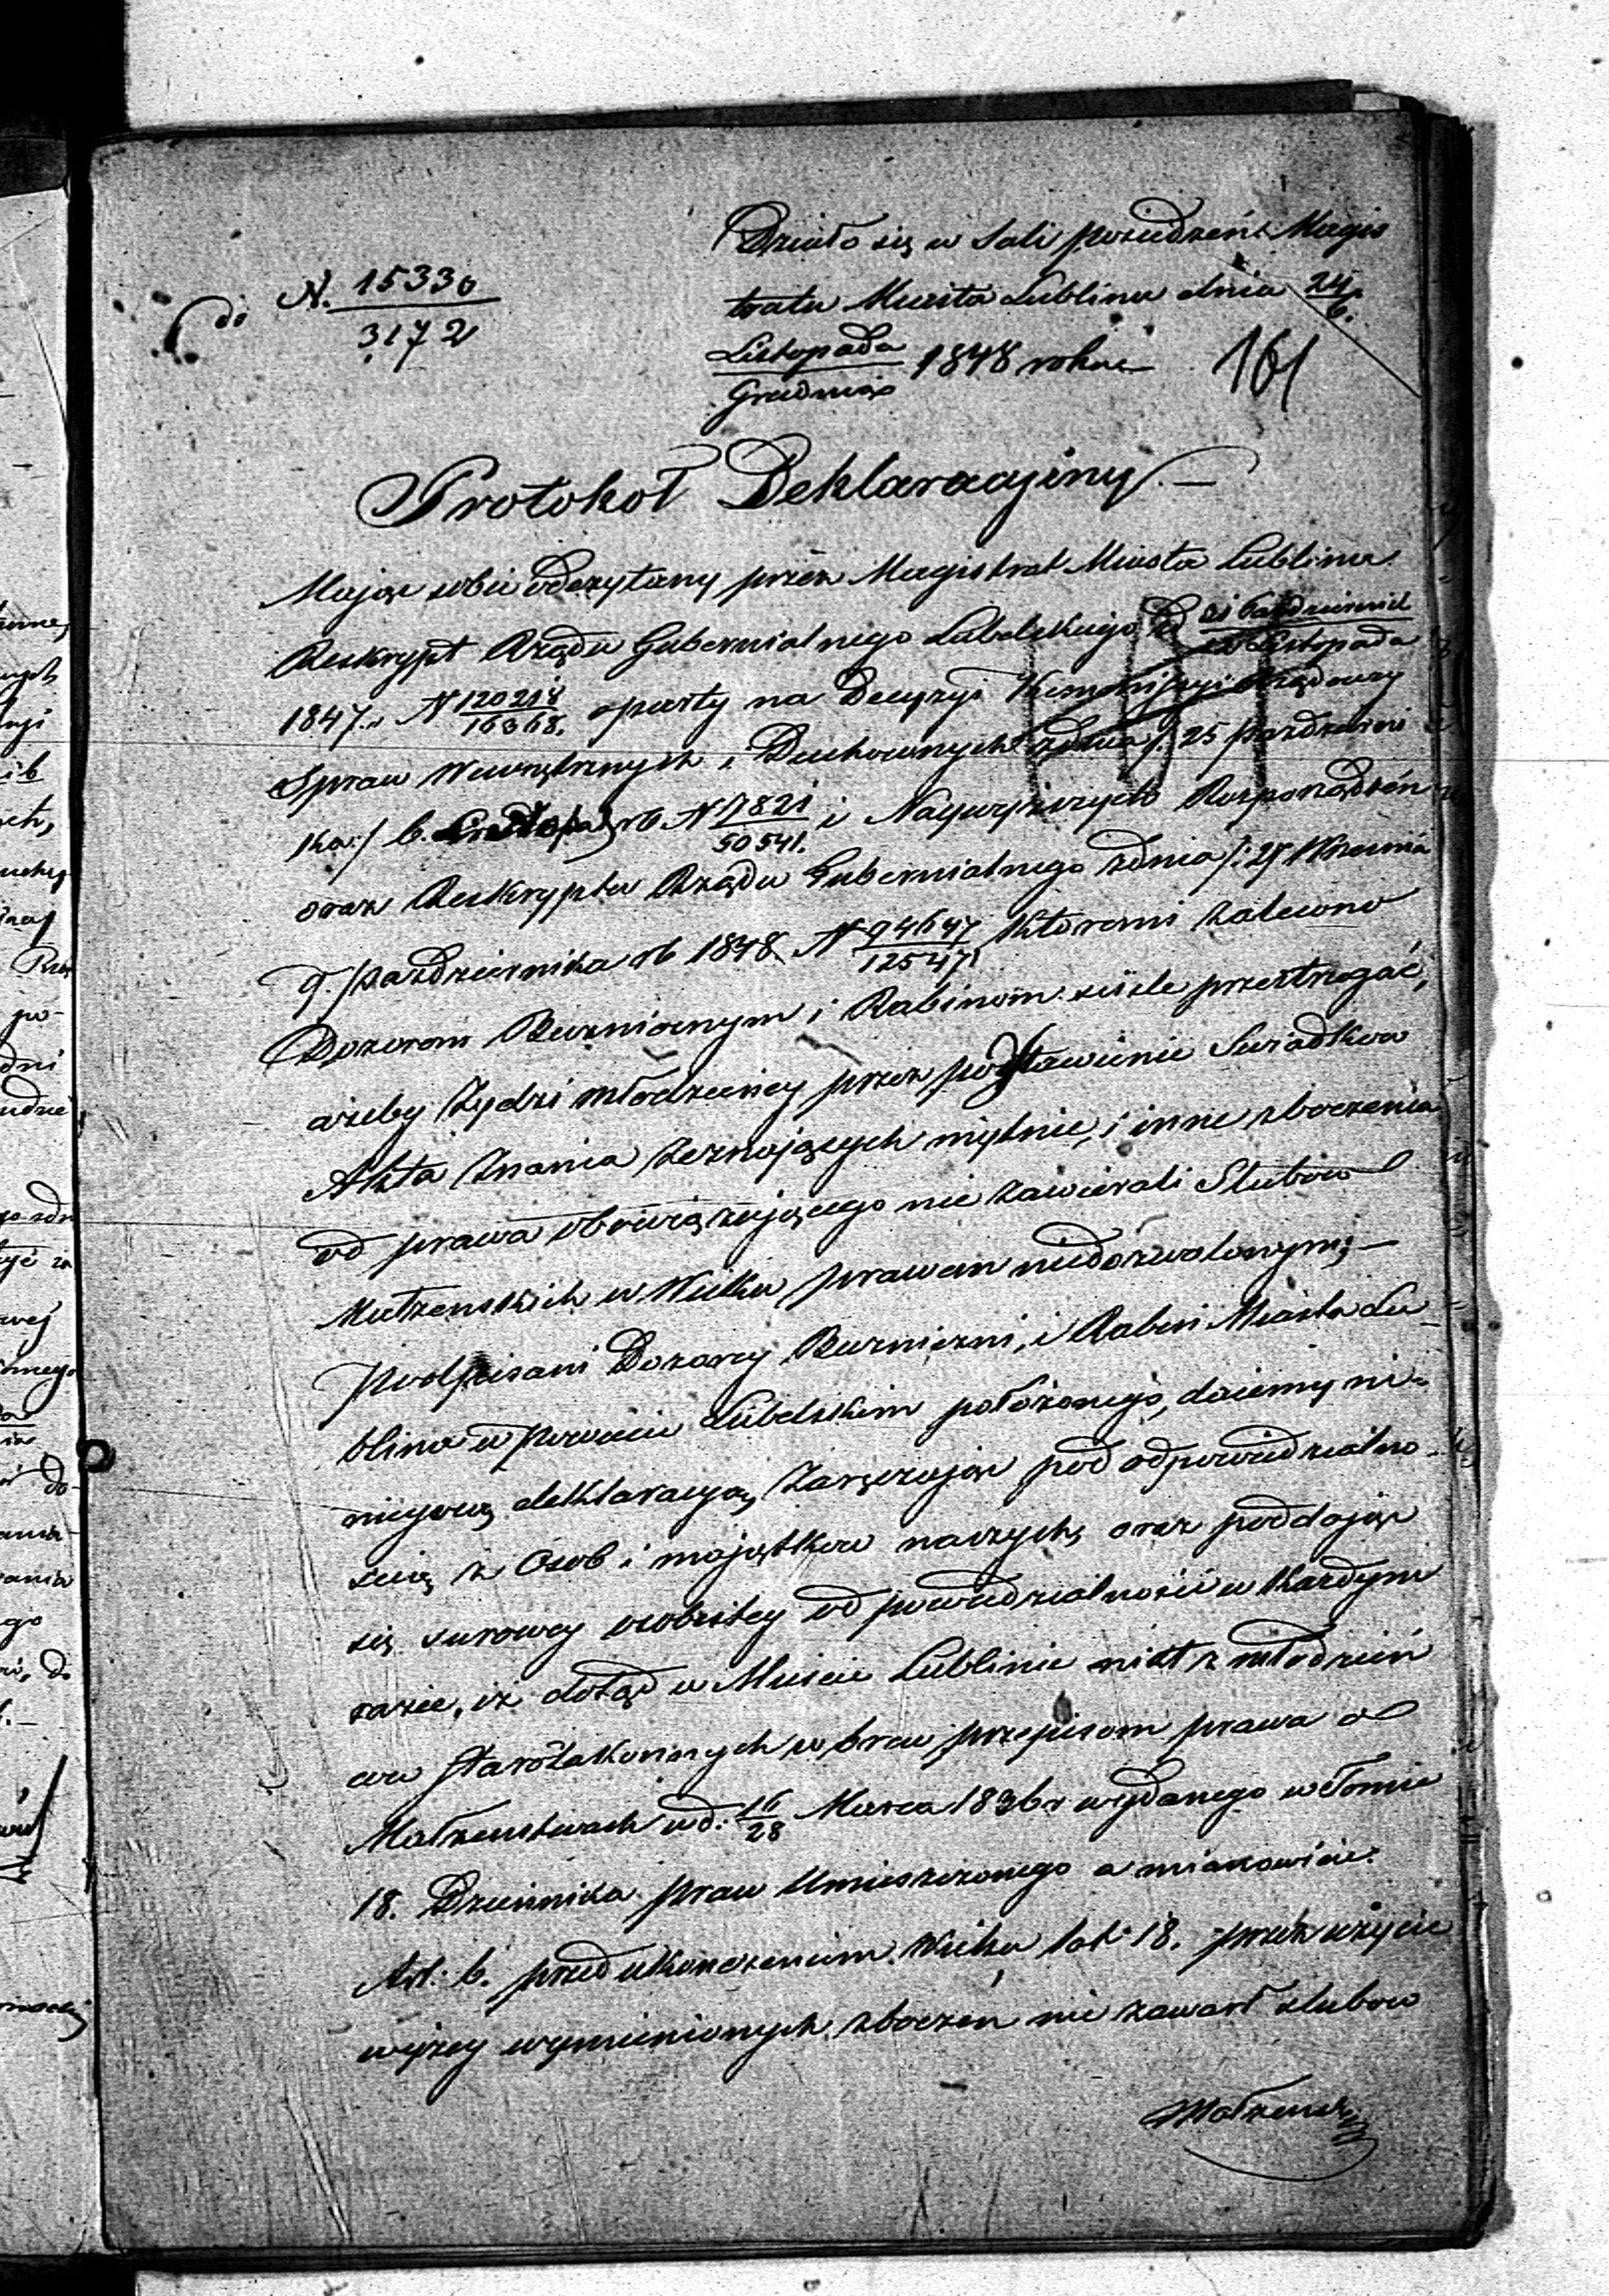 Działo się w Sali posiedzeń Magis
tratu Miasta Lublina dnia 24/6.
do N. 15330/3172
Listopada/Grudnia 1848 roku
161
Protokół Deklaracyiny.—
Mając sobie odczytany przez Magistrat Miasta Lublina
Reskrypt Rządu Gubernialnego Lubelskiego Października/Listopada
1847. N 120218/16368. oparty na Decyzyi Kommissyi Rządowey
Spraw Wewnętrznych i Duchownych z dnia /: 25 Październi
ka:/ 6. Listopada rb N 7821/50541. i Naywyższych Rozporządzeń
oraz Reskryptu Rządu Gubernialnego z dnia /: 27 Września
9. Października rb 1848 N 94647/12547 Któremi zalecono
Dozorom Bużniczym i Rabinom ściśle przestrzegać,
ażeby Żydzi młodzieńcy przez podstawienie Swiadków
Akta Znania zeznających mylnie, i inne zboczenia
od prawa obowiązującego nie zawierali Slubów
Małżenskich w Wieku prawem niedozwolonym;—
Podpisani Dozorcy Bużniczni, i Rabin Miasta Lu
blina w Powiecie Lubelskim położonego, daiemy ni-
nieyszą deklaracyą, zaręczając pod odpowiedzialno
scią z Osob i majątków naszych, oraz poddając
się surowey osobistey odpowiedzialności w Każdym
razie, iż dotąd w Mieście Lublinie nikt z młodzień
ców Starozakonnych wbrew przepisom prawa o
Małżenstwach z d: 16/28 Marca 1836 r wydanego w Tomie
18. Dziennika praw Umieszczonego a mianowicie:
Art: 6. przed ukończeniem Wieku lat 18. przez użycie
wyżey wymienionych zboczeń nie zawarł slubów
Małżensk